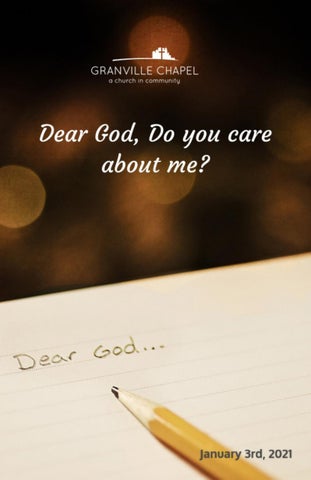 GRANVILLE CHAPEL
a church in community
Dear God, Do you care
about me?
Dear God...
January 3rd, 2021